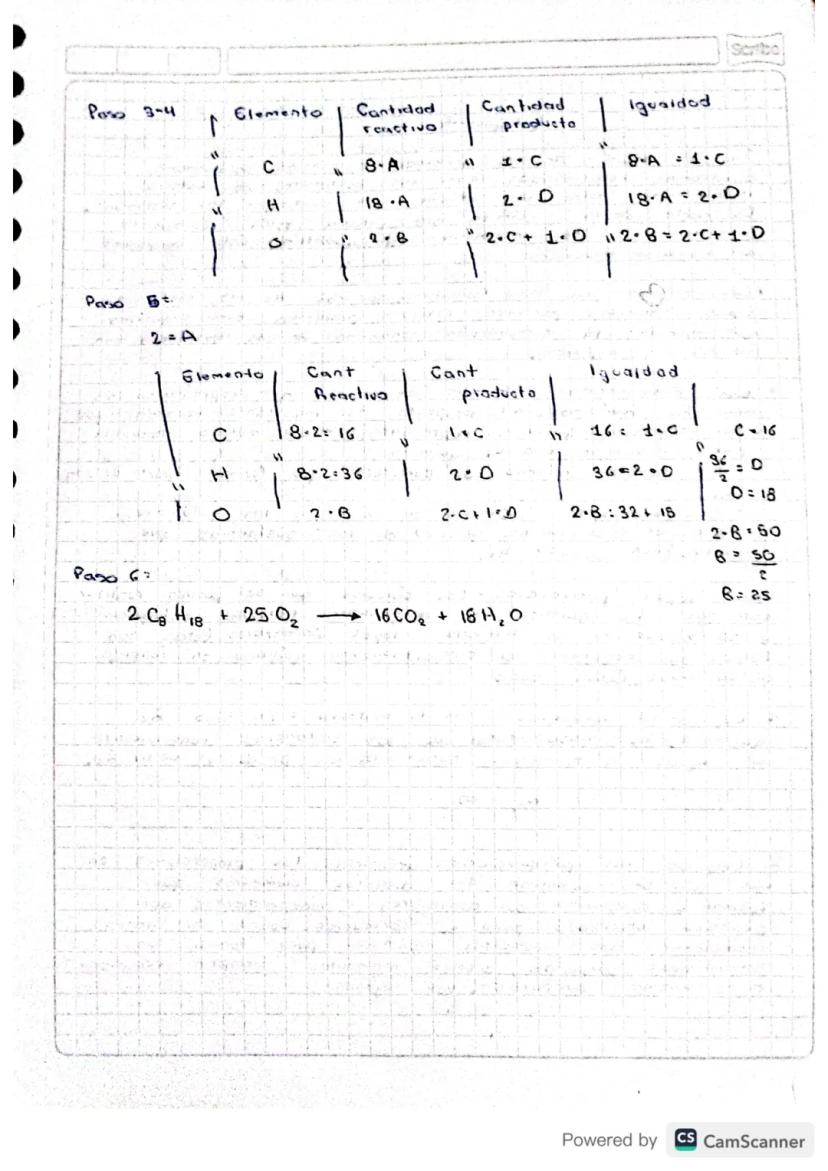 Scribe
Paso 3-4 Elemento Cantidad reactivo Cantidad producto Igualdad
C 8·A 1·C 8·A = 1·C
H 18·A 2·D 18·A = 2·D
O 2·B 2·C + 1·D 2·B = 2·C + 1·D
Paso 5:
2 = A
Elemento Cant Reactivo Cant producto Igualdad
C 8·2 = 16 1·C 16 = 1·C C = 16
H 8·2 = 36 2·D 36 = 2·D 36/2 = D
D = 18
O 2·B 2·C + 1·D 2·B = 32 + 18
2·B = 50
B = 50/2
B = 25
Paso 6:
2 C₈ H₁₈ + 25 O₂ → 16 CO₂ + 18 H₂O
Powered by CS CamScanner